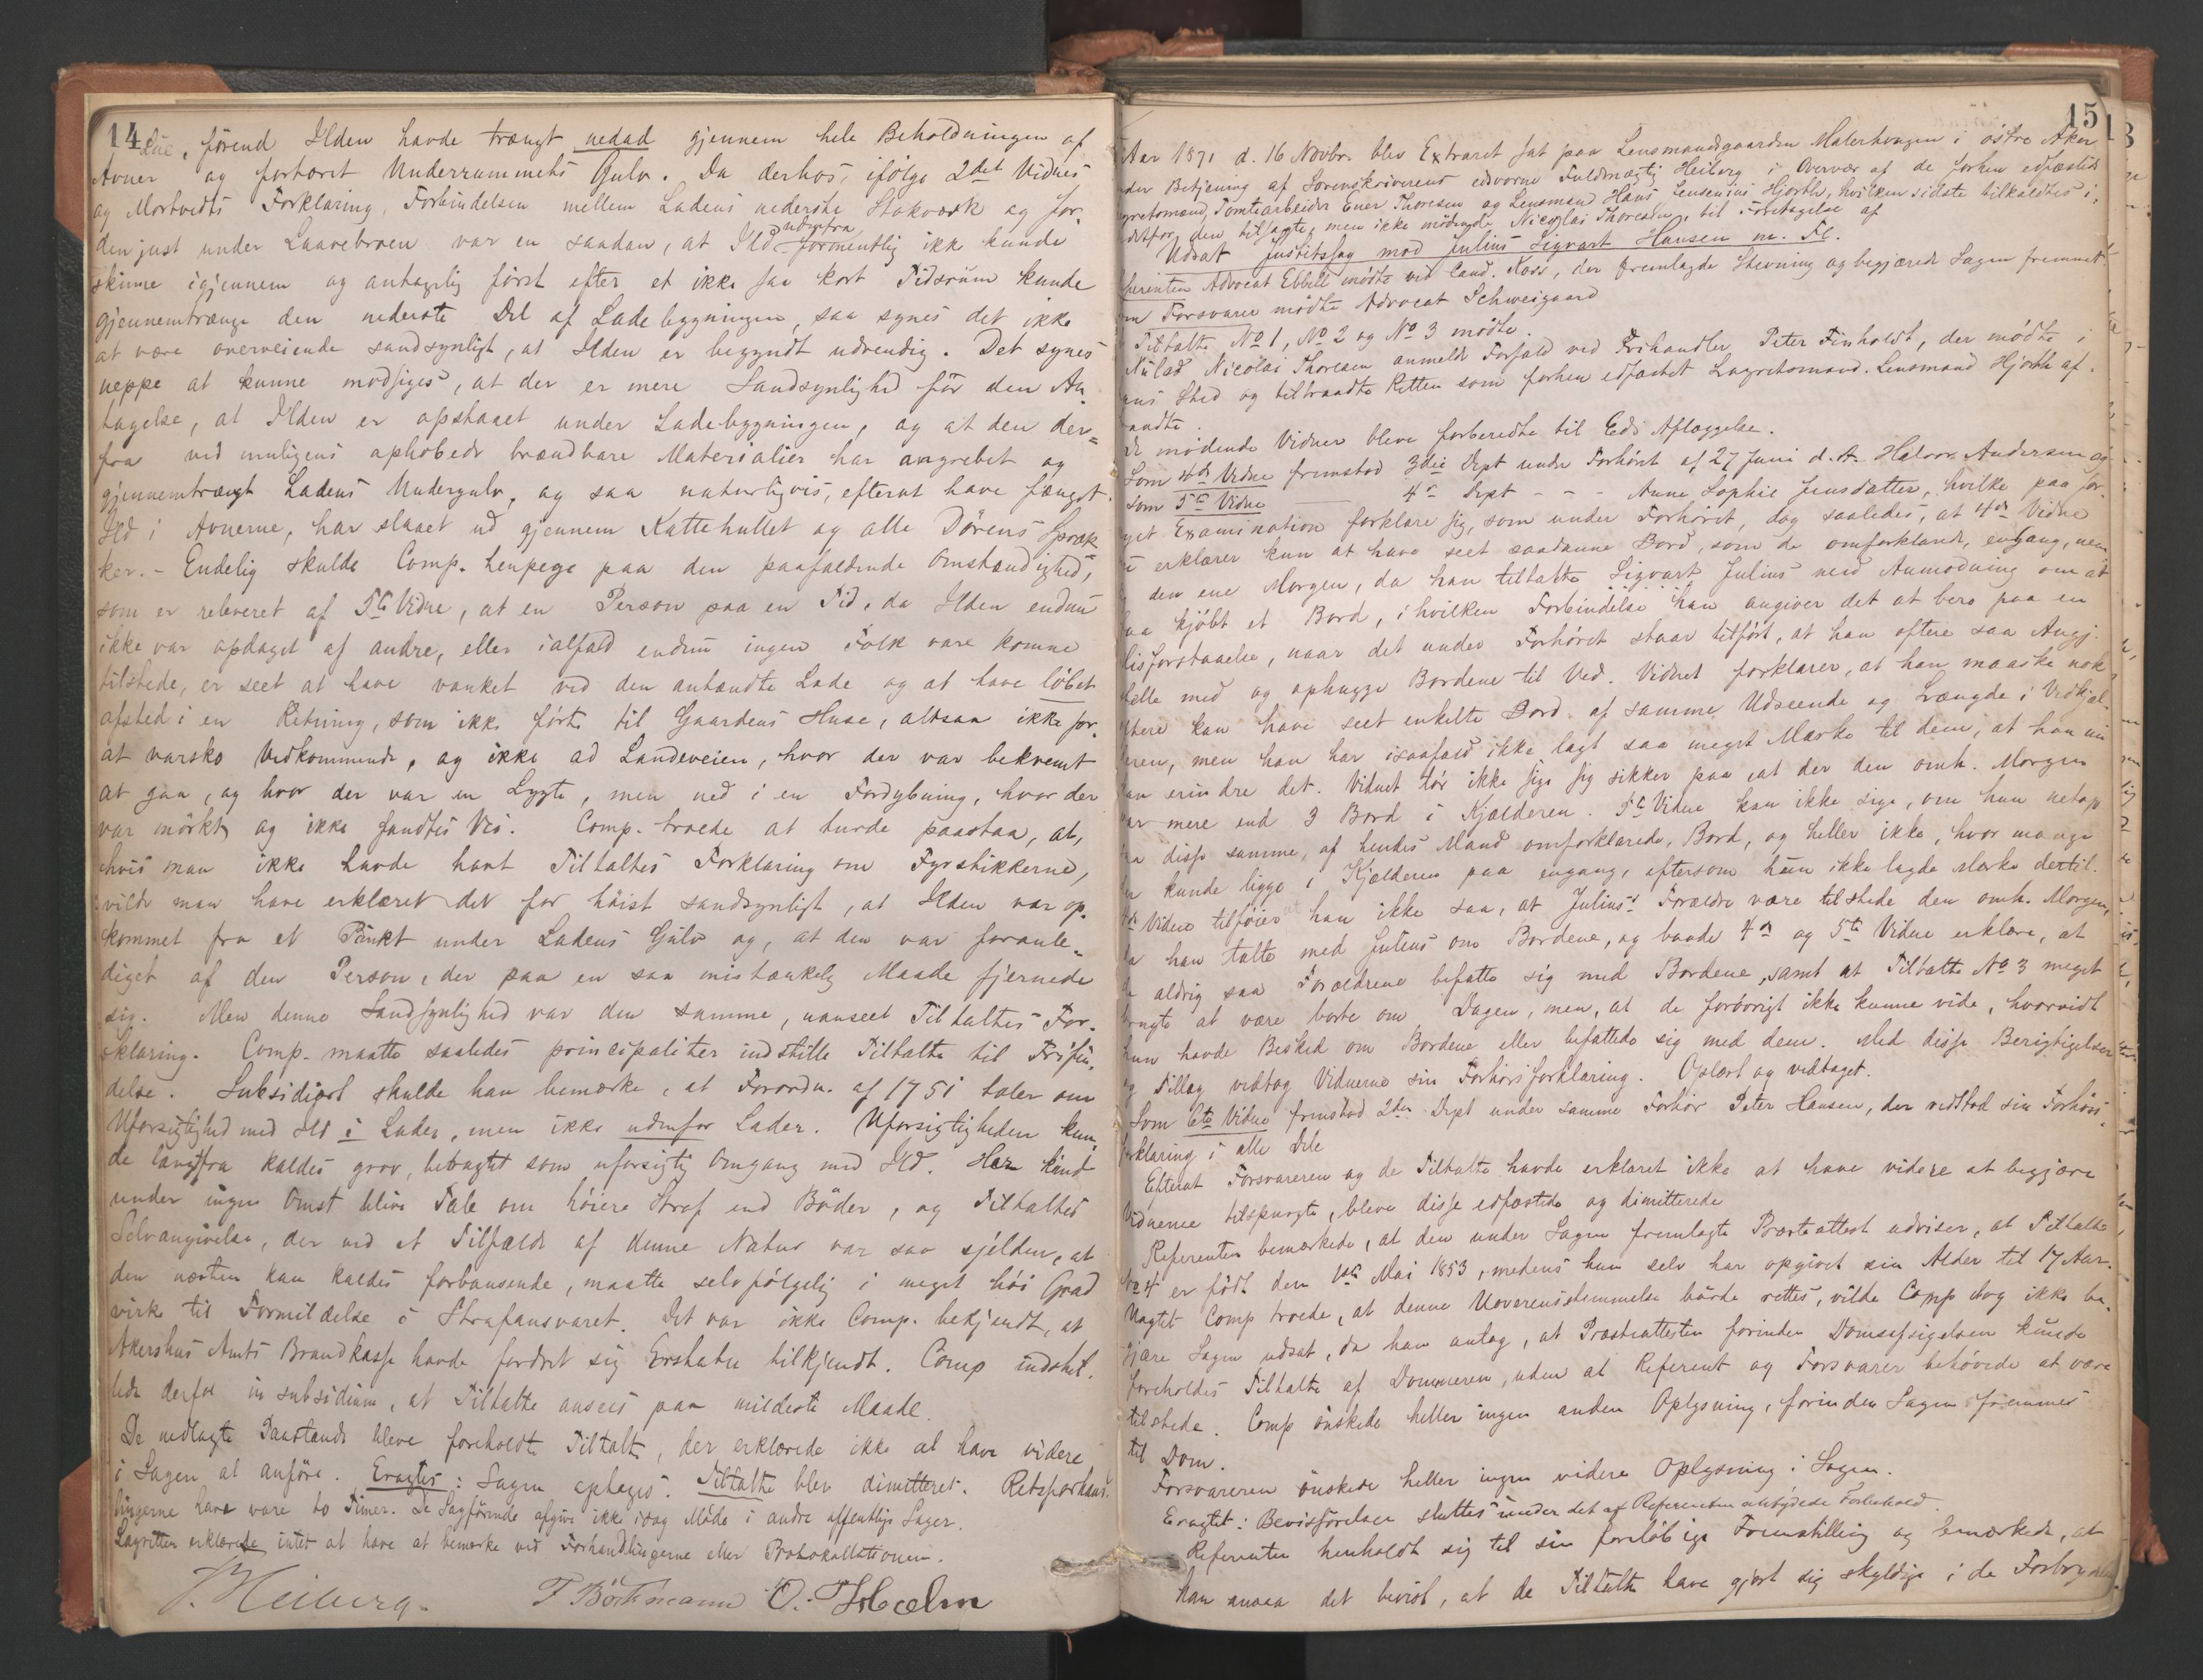 14
Lue, förend Ilden havde trængt nedad gjennem hele Beholdningen af
Avner og fortæret Underrummets Gulv. Da derhos, ifölge 2det Vidnes
og Mortvedts Forklaring, Forbindelsen mellem Ladens nederste Stokværk og Jor-
den just under Laavebroen var en saadan, at Ild udenfra formentlig ikke kunde
skinne igjennem og antagelig först efter et ikke saa kort Tidsrum kunde
gjennemtrænge den nederste Del af Ladebygningen, saa synes det ikke
at være overveiende sandsynligt, at Ilden er begyndt udvendig. Det synes
neppe at kunne modsiges, at der er mere Sandsynlighed for den An-
tagelse, at Ilden er opstaaet under Ladebygningen, og at den der-
fra ved muligens ophobede brændbare Materialier har angrebet og
gjennemtrængt Ladens Undergulv, og saa naturligvis, efterat have fænget
Ild i Avnerne, har slaaet ud gjennem Kattehullet og alle Dörens Spræk-
ker. - Endelig skulde Comp. henpege paa den paafaldende Omstændighed,
som er releveret af 5te Vidne, at en Person paa en Tid, da Ilden endnu
ikke var opdaget af andre, eller ialfald endnu ingen Folk vare komne
tilstede, er seet at have vanket ved den antændte Lade og at have löbet
afsted i en Retning, som ikke förte til Gaardens Huse, altsaa ikke for
at varsko Vedkommende, og ikke ad Landeveien, hvor der var bekvemt
at gaa, og hvor der var en Lygte, men ned i en Fordybning, hvor der
var mörkt og ikke fandtes Vei. Comp. troede at turde paastaa, at,
hvis man ikke havde havt Tiltaltes Forklaring om Fyrstikkerne,
vilde man have erklæret det for höist sandsynligt, at Ilden var op-
kommet fra et Punkt under Ladens Gulv og, at den var foranle-
diget af den Person, der paa en saa mistænkelig Maade fjernede
sig. Men denne Sandsynlighed var den samme, uanseet Tiltaltes For-
klaring. Comp. maatte saaledes principaliter indstille Tiltalte til Frifin-
delse. Subsidiært skulde han bemærke, at Forordn. af 1751 taler om
Uforsigtighed med Ild i Lader, men ikke udenfor Lader. Uforsigtigheden kun-
de langtfra kaldes grov, betragtet som uforsigtig Omgang med Ild. Her kunde
under ingen Omst blive Tale om höiere Straf end Böder, og Tiltaltes
Selvangivelse, der ved et Tilfælde af denne Natur var saa sjelden, at
den næsten kan kaldes forbausende, maatte selvfölgelig i meget höi Grad
virke til Formildelse i Strafansvaret. Det var ikke Comp. bekjendt, at
Akershus Amts Brandkasse havde fordret sig Erstatn tilkjendt. Comp indstil-
lede derfor in subsidium, at Tiltalte ansees paa mildeste Maade.
De nedlagte Paastande bleve foreholdte Tiltalte, der erklærede ikke at have videre
i Sagen at anföre. Eragtes: Sagen optages. Tiltalte blev dimitteret. Retsforhand-
lingerne have varet to Timer. De Sagförende afgive ikke idag Möde i andre offentlige Sager.
Lagretten erklærede intet at have at bemærke ved Forhandlingerne eller Protokollationen.
J. Heiberg. F Böckmann O. Holm
15
Aar 1871 d. 16 Novbr. blev Extraret sat paa Lensmandsgaarden Malerhaugen i östre Aker
under Betjening af Sorenskriverens edsvorne Fuldmægtig Heiberg i Overvær af de forhen edfæstede
Lagretsmænd, Tomtearbeider Ener Thoresen og Lensmand Hans Jensenius Hjorth, hvilken sidste tilkaldtes i
Stedetfor den tilsagte, men ikke mödende Nicolai Thoresen, til Foretagelse af
Udsat Justitssag mod Julius Sigvart Hansen m. Fl.
Referenten Advocat Ebbell mödte ved Cand. Koss, der fremlagde Stevning og begjærede Sagen fremmet.
Som Forsvarer mödte Advocat Schweigaard
Tiltalte No 1, No 2 og No 3 mödte.
Nulad Nicolai Thoresen anmeldte Forfald ved Frihandler Peter Finholdt, der mödte i
hans Sted og tiltraadte Retten som forhen edfæstet Lagretsmand. Lensmand Hjorth af-
traadte.
De mödende Vidner bleve forberedte til Eds Aflæggelse.
Som 4de Vidne fremstod 3die Dept under Forhöret af 27 Juni d. A. Halvor Andersen og
som 5te Vidne — 4de Dept - - - Anne Sophie Jensdatter, hvilke paa for-
eget Examination forklare sig, som under Forhöret, dog saaledes, at 4de Vidne
erklærer kun at have seet saadanne Bord, som de omforklarede, engang, nem-
lig den ene Morgen, da han tiltalte Sigvart Julius med Anmodning om at
faa kjöbt et Bord, i hvilken Forbindelse han angiver det at bero paa en
Misforstaaelse, naar det under Forhöret staar tilfört, at han oftere saa Angj.
stelle med og ophugge Bordene til Ved. Vidnet forklarer, at han maaske nok
oftere kan have seet enkelte Bord af samme Udseende og Længde i Vedkjel-
deren, men han har isaafald ikke lagt saa meget Mærke til dem, at han nu
kan erindre det. Vidnet tör ikke sige sig sikker paa, at der den omh. Morgen
var mere end 3 Bord i Kjælderen. 5te Vidne kan ikke sige, om hun netop
saa disse samme, af hendes Mand omforklarede, Bord, og heller ikke, hvor mange
der kunde ligge i Kjælderen paa engang, eftersom hun ikke lagde Mærke dertil.
4de Vidne tilföier at han ikke saa, at Julius's Forældre vare tilstede den omh. Morgen,
da han talte med Julius om Bordene, og baade 4de og 5te Vidne erklære, at
de aldrig saa Forældrene befatte sig med Bordene, samt at Tiltalte No 3 meget
brugte at være borte om Dagen, men, at de forövrigt ikke kunne vide, hvorvidt
hun havde Besked om Bordene eller befattede sig med dem. Med disse Berigtigelser
og Tillæg vedtog Vidnerne sin Forhörsforklaring. Oplæst og vedtaget.
Som 6te Vidne fremstod 2den Dept under samme Forhör Peter Hansen, der vedstod sin Forhörs-
forklaring i alle Dele
Efterat Forsvareren og de Tiltalte havde erklæret ikke at have videre at begjære
Vidnerne tilspurgte, bleve disse edfæstede og dimitterede
Referenten bemærkede, at den under Sagen fremlagte Præsteattest udviser, at Tiltalte
No 4 er födt den 1ste Mai 1853, medens hun selv har opgivet sin Alder til 17 Aar.
Uagtet Comp troede, at denne Uoverensstemmelse burde rettes, vilde Comp dog ikke be-
gjære Sagen udsat, da han antog, at Præsteattesten forinden Domsafsigelsen kunde
foreholdes Tiltalte af Dommeren, uden at Referent og Forsvarer behövede at være
tilstede. Comp önskede heller ingen anden Oplysning, forinden Sagen fremmes
til Dom.
Forsvareren önskede heller ingen videre Oplysning i Sagen.
Eragtet: Bevisförelsen sluttes under det af Referenten antydede Forbehold.
Referenten henholdt sig til sin foreløbige Fremstilling og bemærkede, at
han ansaa det bevist, at de Tiltalte have gjort sig skyldige i de Forbry